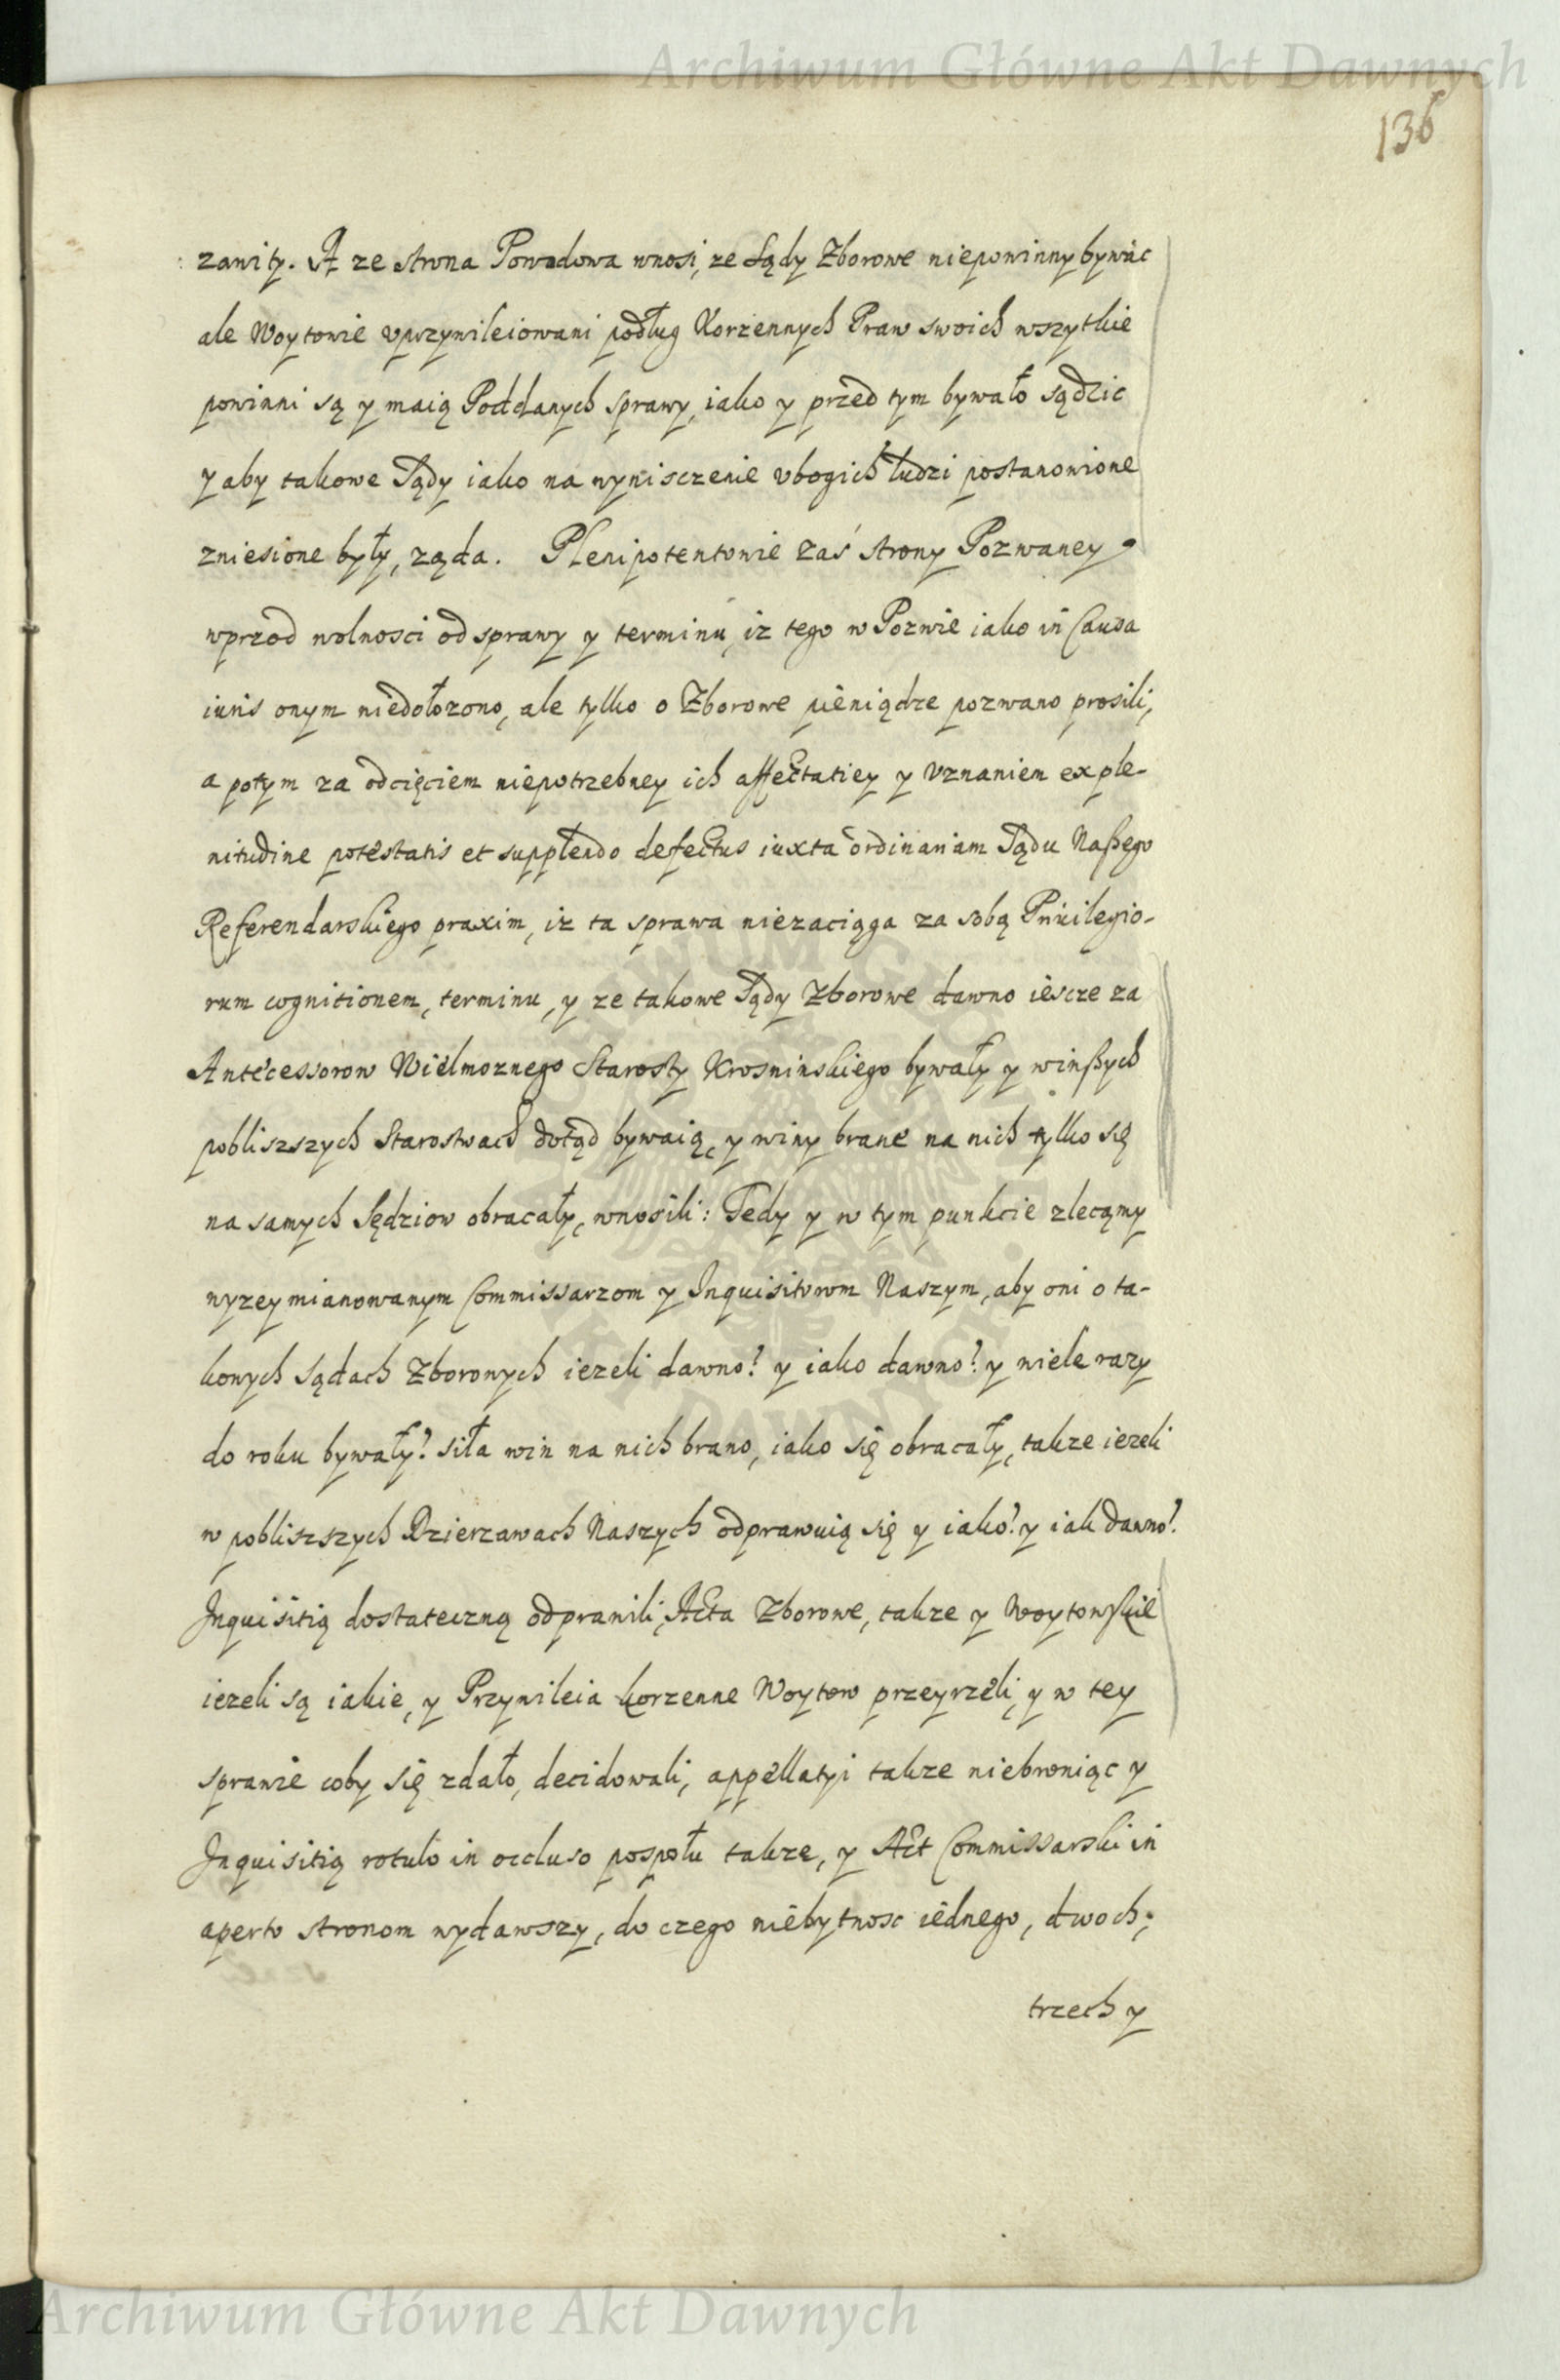 Archiwum Główne Akt Dawnych
136
zawity. A ze strona Powodowa wnosi, ze Sądy Zborowe niepowinny bywać
ale Woytowie vprzywileiowani podług Korzennych Praw swoich wszytkie
powinni są y maią Poddanych sprawy, iako y przed tym bywało sądzic
y aby takowe Sądy iako na wynisczenie vbogich ludzi postanowione
zniesione były, ząda. Plenipotentowie zaś strony Pozwaney
wprzod wolnosci od sprawy y terminu, iz tego w Pozwie iako in Causa
iuris onym niedołozono, ale tylko o Zborowe pieniądze pozwano prosili,
a potym za odcięciem niepotrzebney ich affectatiey y vznaniem ex ple-
nitudine potestatis et supplendo defectus iuxta ordinariam Sądu Naszego
Referendarskiego praxim, iz ta sprawa niezaciąga za sobą Priuilegio-
rum cognitionem, terminu, y ze takowe Sądy Zborowe dawno iescze za
Antecessorow Wielmoznego Starosty Krosninskiego bywały y winszych
pobliszszych Starostwach dotąd bywaią, y winy brane na nich tylko się
na samych Sędziow obracały, wnosili: Tedy y w tym punkcie zlecamy
wyzey mianowanym Commissarzom y Inquisitorom Naszym, aby oni o ta-
kowych sądach Zborowych iezeli dawno? y iako dawno? y wiele razy
do roku bywały? siła win na nich brano, iako się obracały, takze iezeli
w pobliszszych Dzierzawach Naszych odprawuią się y iako? y iak dawno?
Inquisitią dostateczną odprawili, Acta Zborowe, takze y Woytowskie
iezeli są iakie, y Przywileia korzenne Woytow przeyrzeli, y w tey
sprawie coby się zdało, decidowali, appellatyi takze niebroniąc y
Inquisitią rotulo in occluso pospołu takze, y Act Commissarski in
aperto stronom wydawszy, do czego niebytnosc iednego, dwoch,
trzech y
Archiwum Główne Akt Dawnych